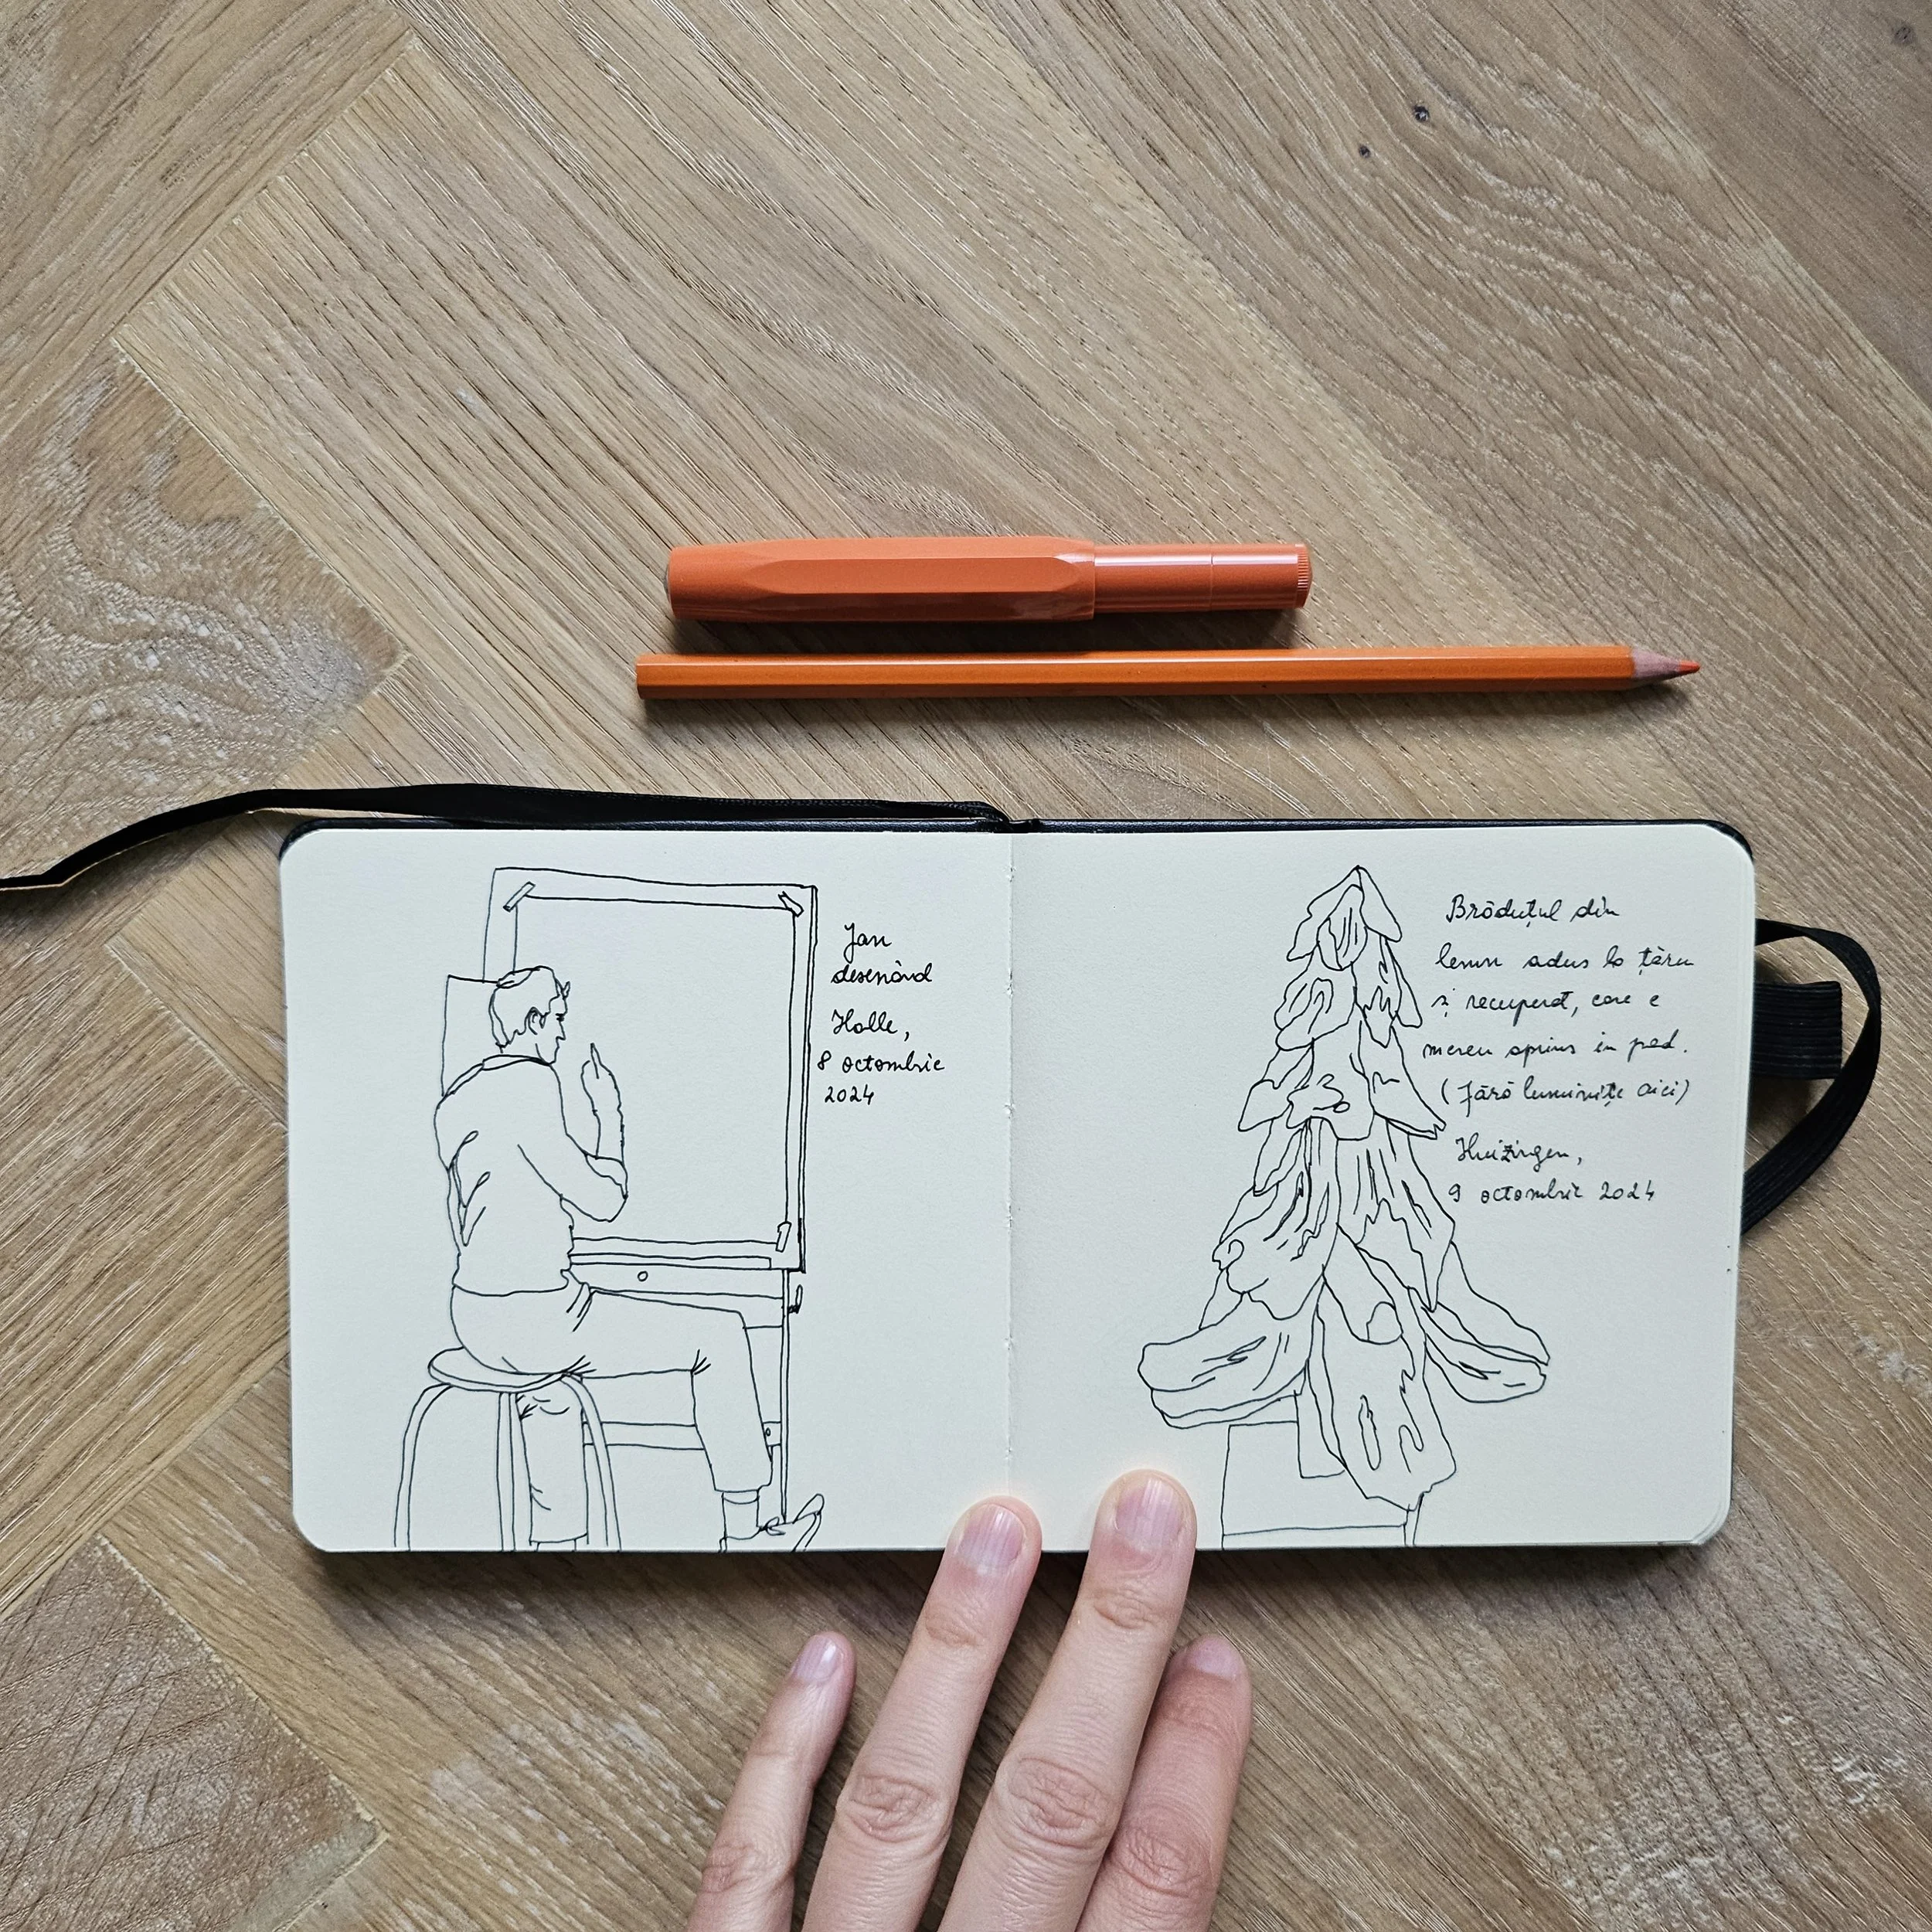 Jan
desenând
Halle,
8 octombrie
2024
Brăduțul din
lemn adus la țăru
și recuperat, care e
mereu aprins în pod.
(fără luminițe aici)
Huizingen,
9 octombrie 2024